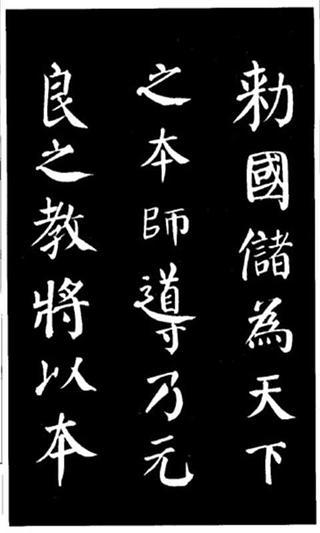 勑國儲為天下
之本師導乃元
良之教將以本